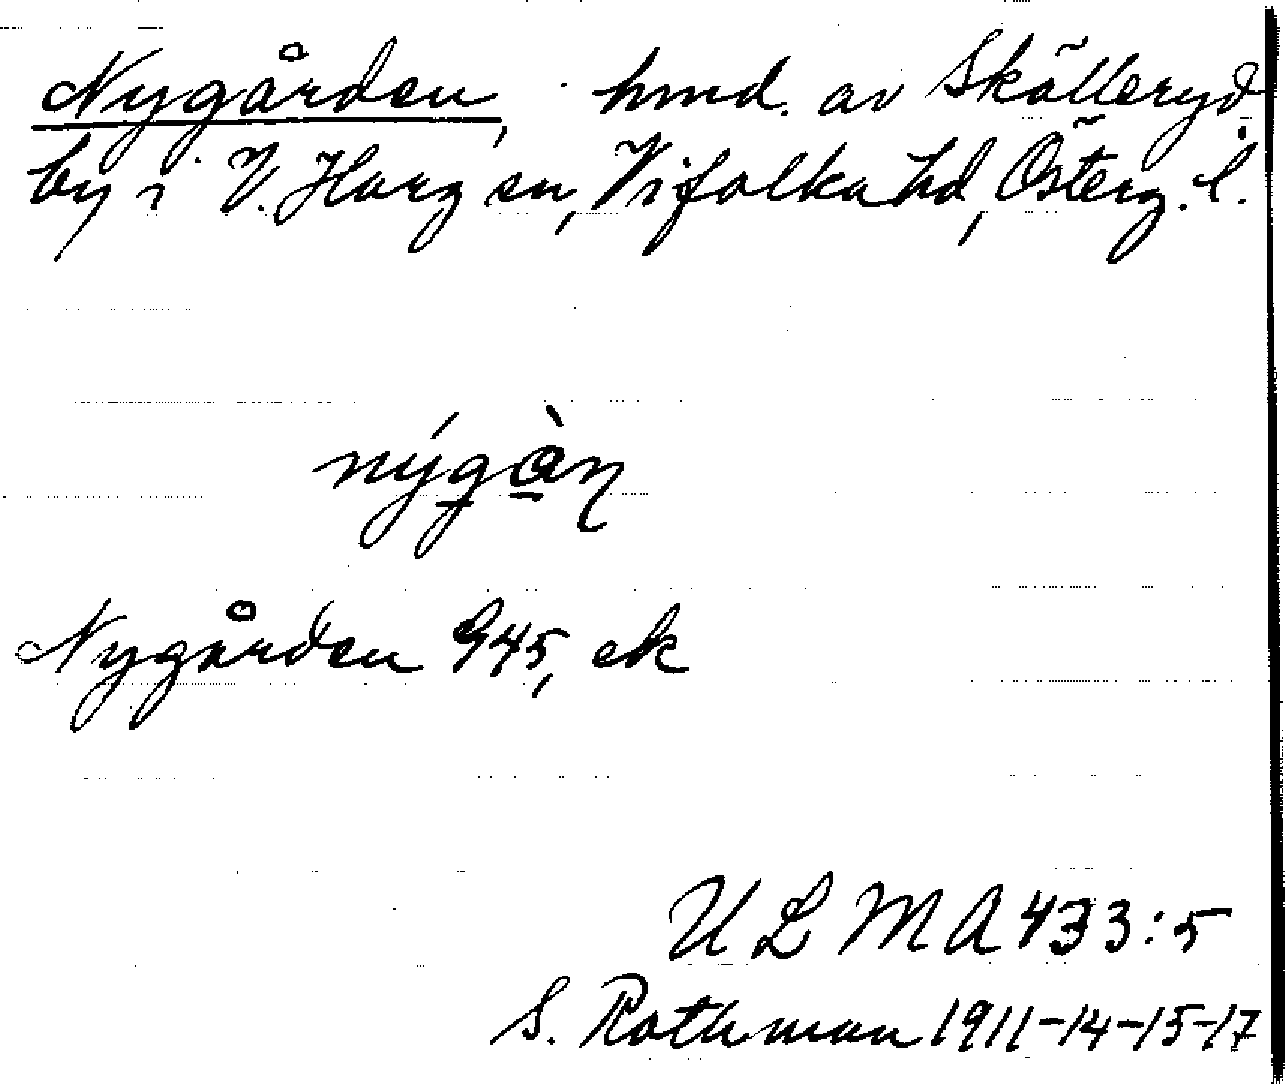 Nygården, hmd. av Skälleryd
by i V. Harg sn, Vifolka hd, Österg. l.
nýgàn
Nygården 945, ek
ULMA 433:5
S. Rothman 1911-14-15-17